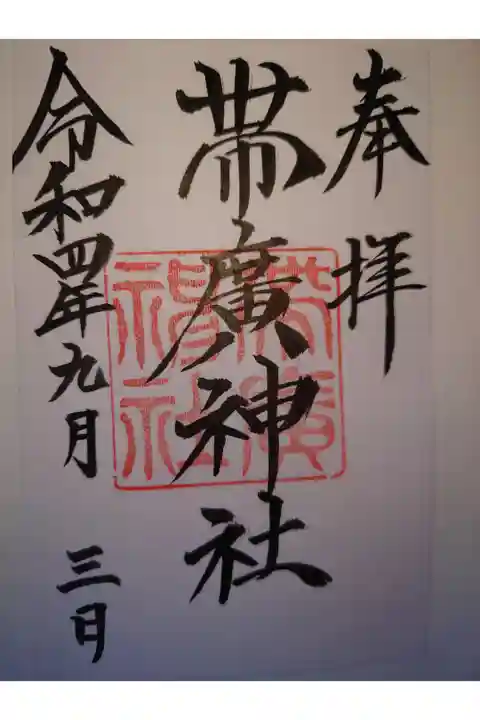 奉拝
帯廣神社
令和四年九月三日
帯廣神社